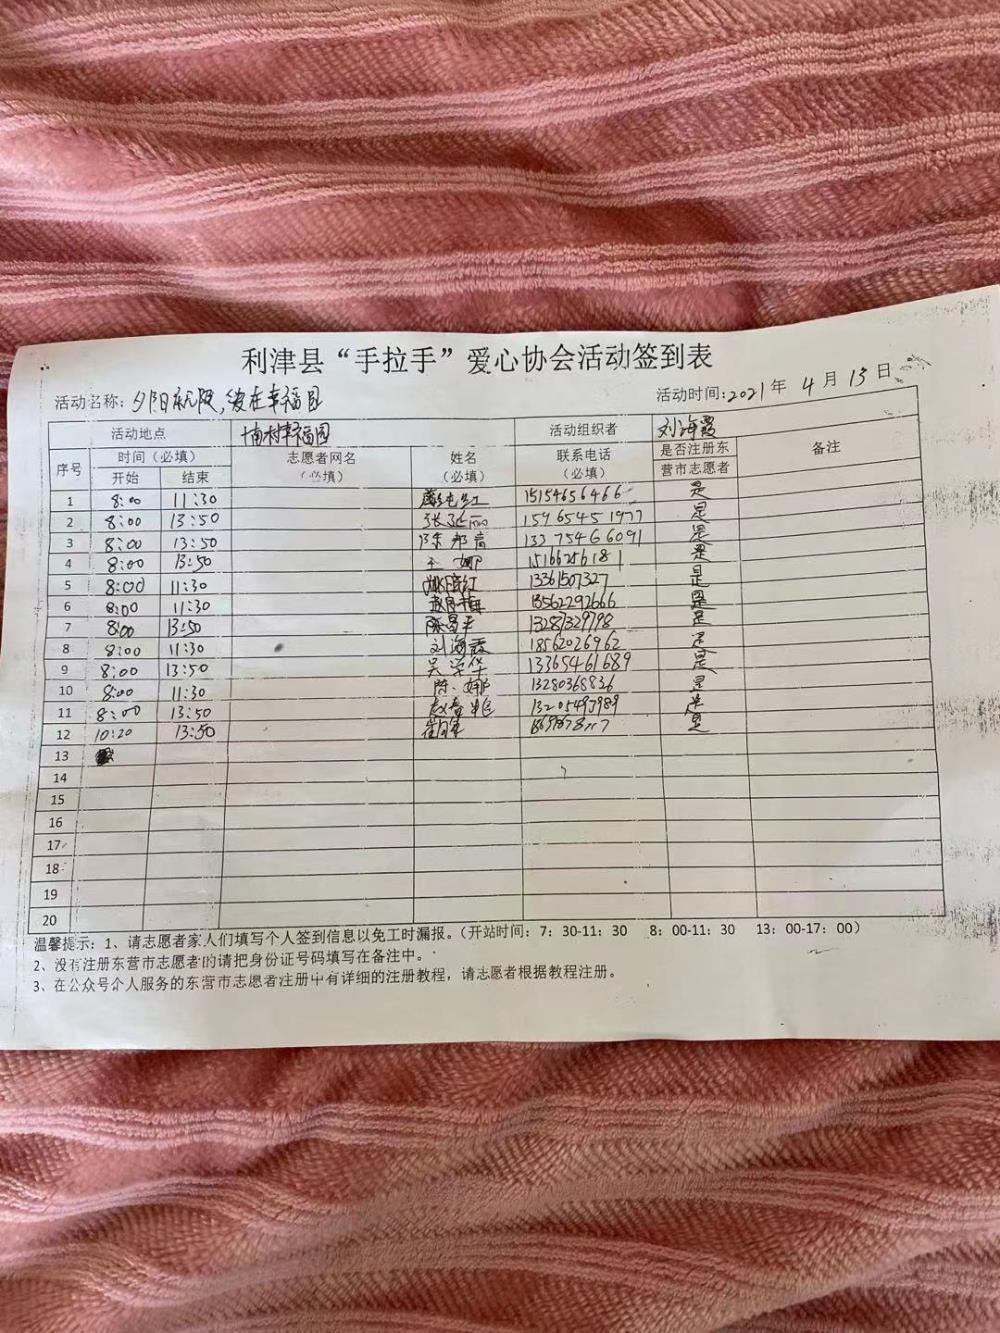 利津县“手拉手”爱心协会活动签到表
活动名称：夕阳无限，爱在幸福园 活动时间：2021年4月13日
活动地点 南村幸福园 活动组织者 刘海霞
序号 时间（必填） 志愿者网名（必填） 姓名（必填） 联系电话（必填） 是否注册东营市志愿者 备注
开始 结束
1 8:00 11:30 15154656466 是
2 8:00 13:50 张延丽 15965451977 是
3 8:00 13:50 13375466091 是
4 8:00 13:50 王娜 15166256181 是
5 8:00 11:30 13361507327 是
6 8:00 11:30 13562292666 是
7 8:00 13:50 陈昌平 13287329798 是
8 8:00 11:30 刘海霞 18562026962 是
9 8:00 13:50 吴学华 13365461689 是
10 8:00 11:30 陈娜 13280368836 是
11 8:00 13:50 13205497989 是
12 10:20 13:50 是
13
14
15
16
17
18
19
20
温馨提示：1、请志愿者家人们填写个人签到信息以免工时漏报。（开站时间：7：30-11：30 8：00-11：30 13：00-17：00）
2、没有注册东营市志愿者的请把身份证号码填写在备注中。
3、在公众号个人服务的东营市志愿者注册中有详细的注册教程，请志愿者根据教程注册。